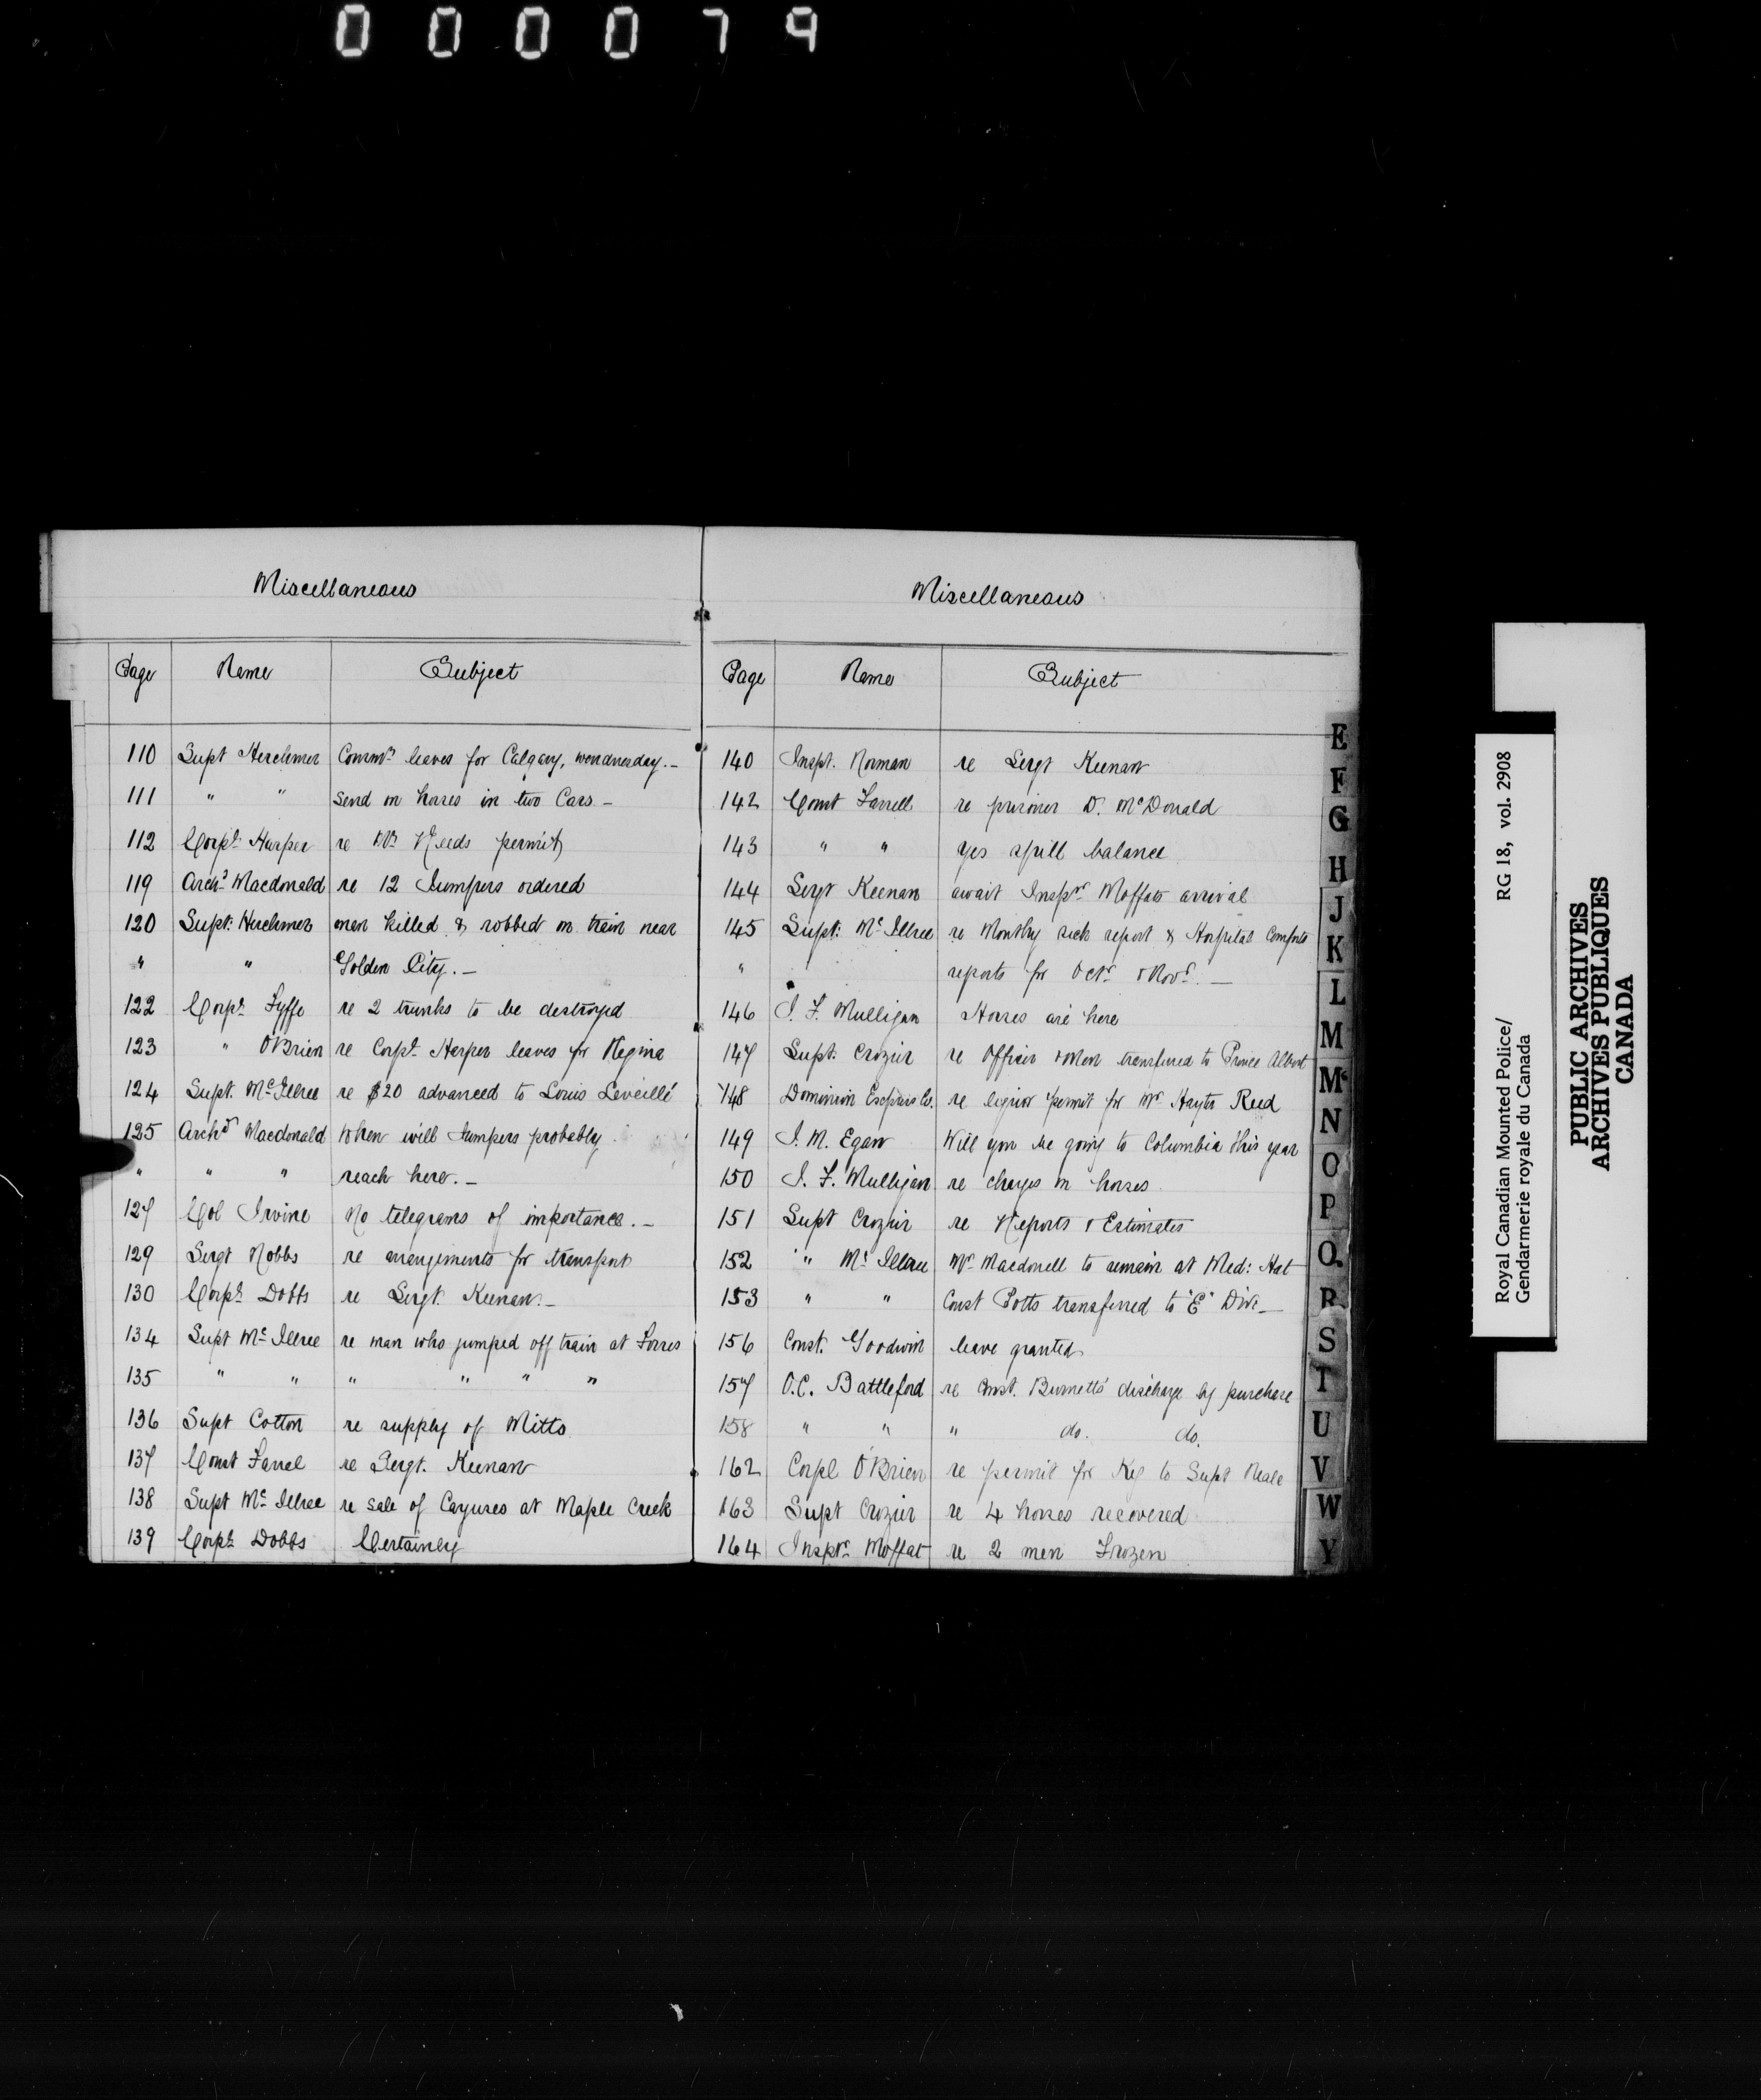 000079
Miscellaneous
Page Name Subject
110 Supt Herchmer Commr leaves for Calgary, wendnesday. —
111 " " Send on horses in two Cars —
112 Corpl Harper re permit
119 Archd Macdonald re 12 Jumpers ordered
120 Supt: Herchmer man killed & robbed on train near
" " Golden City. —
122 Corpl Fyffe re 2 trunks to be destroyed
123 " O'Brien re Corpl Harper leaves for Regina
124 Supt. McIllree re $20 advanced to Louis Leveillé
125 Archd Macdonald When will Jumpers probably
" " " reach here. —
127 Col Irvine No telegrams of importance. —
129 Sergt Nobbs re arrangements for transport
130 Corpl Dobbs re Sergt. Keenan. —
134 Supt McIllree re man who jumped off train at Forres
135 " " " " " "
136 Supt Cotton re supply of Mitts
137 Const Farrel re Sergt. Keenan
138 Supt McIllree re sale of Cayuses at Maple Creek
139 Corpl Dobbs Certainly
Miscellaneous
Page Name Subject
140 Inspt. Norman re Sergt Keenan
142 Const Farrell re prisoner D. McDonald
143 " " yes spill balance
144 Sergt Keenan await Inspr Moffats arrival
145 Supt: McIllree re Monthly sick report & Hospital Comforts
" reports for Octr & Novr. —
146 J. F. Mulligan Horses are here
147 Supt: Crozier re Officer & Men transfered to Prince Albert
148 Dominion Express Co. re liquor permit for Mr Hayter Reed
149 J. M. Egan Will you be going to Columbia this year
150 J. F. Mulligan re charges on horses
151 Supt Crozier re Reports & Estimates
152 " McIllree Mr Macdonell to remain at Med: Hat
153 " " Const Potts transferred to "E" Divn —
156 Const. Goodwin leave granted
157 O.C. Battleford re Const. Burnetts' discharge by purchase
158 " " " do. do.
162 Corpl O'Brien re permit for Keg to Supt Neale
163 Supt Crozier re 4 horses recovered
164 Inspr Moffat re 2 men Frozen
E
F
G
H
J
K
L
M
Mc
N
O
P
Q
R
S
T
U
V
W
Y
Royal Canadian Mounted Police/
Gendarmerie royale du Canada
RG 18, vol. 2908
PUBLIC ARCHIVES
ARCHIVES PUBLIQUES
CANADA